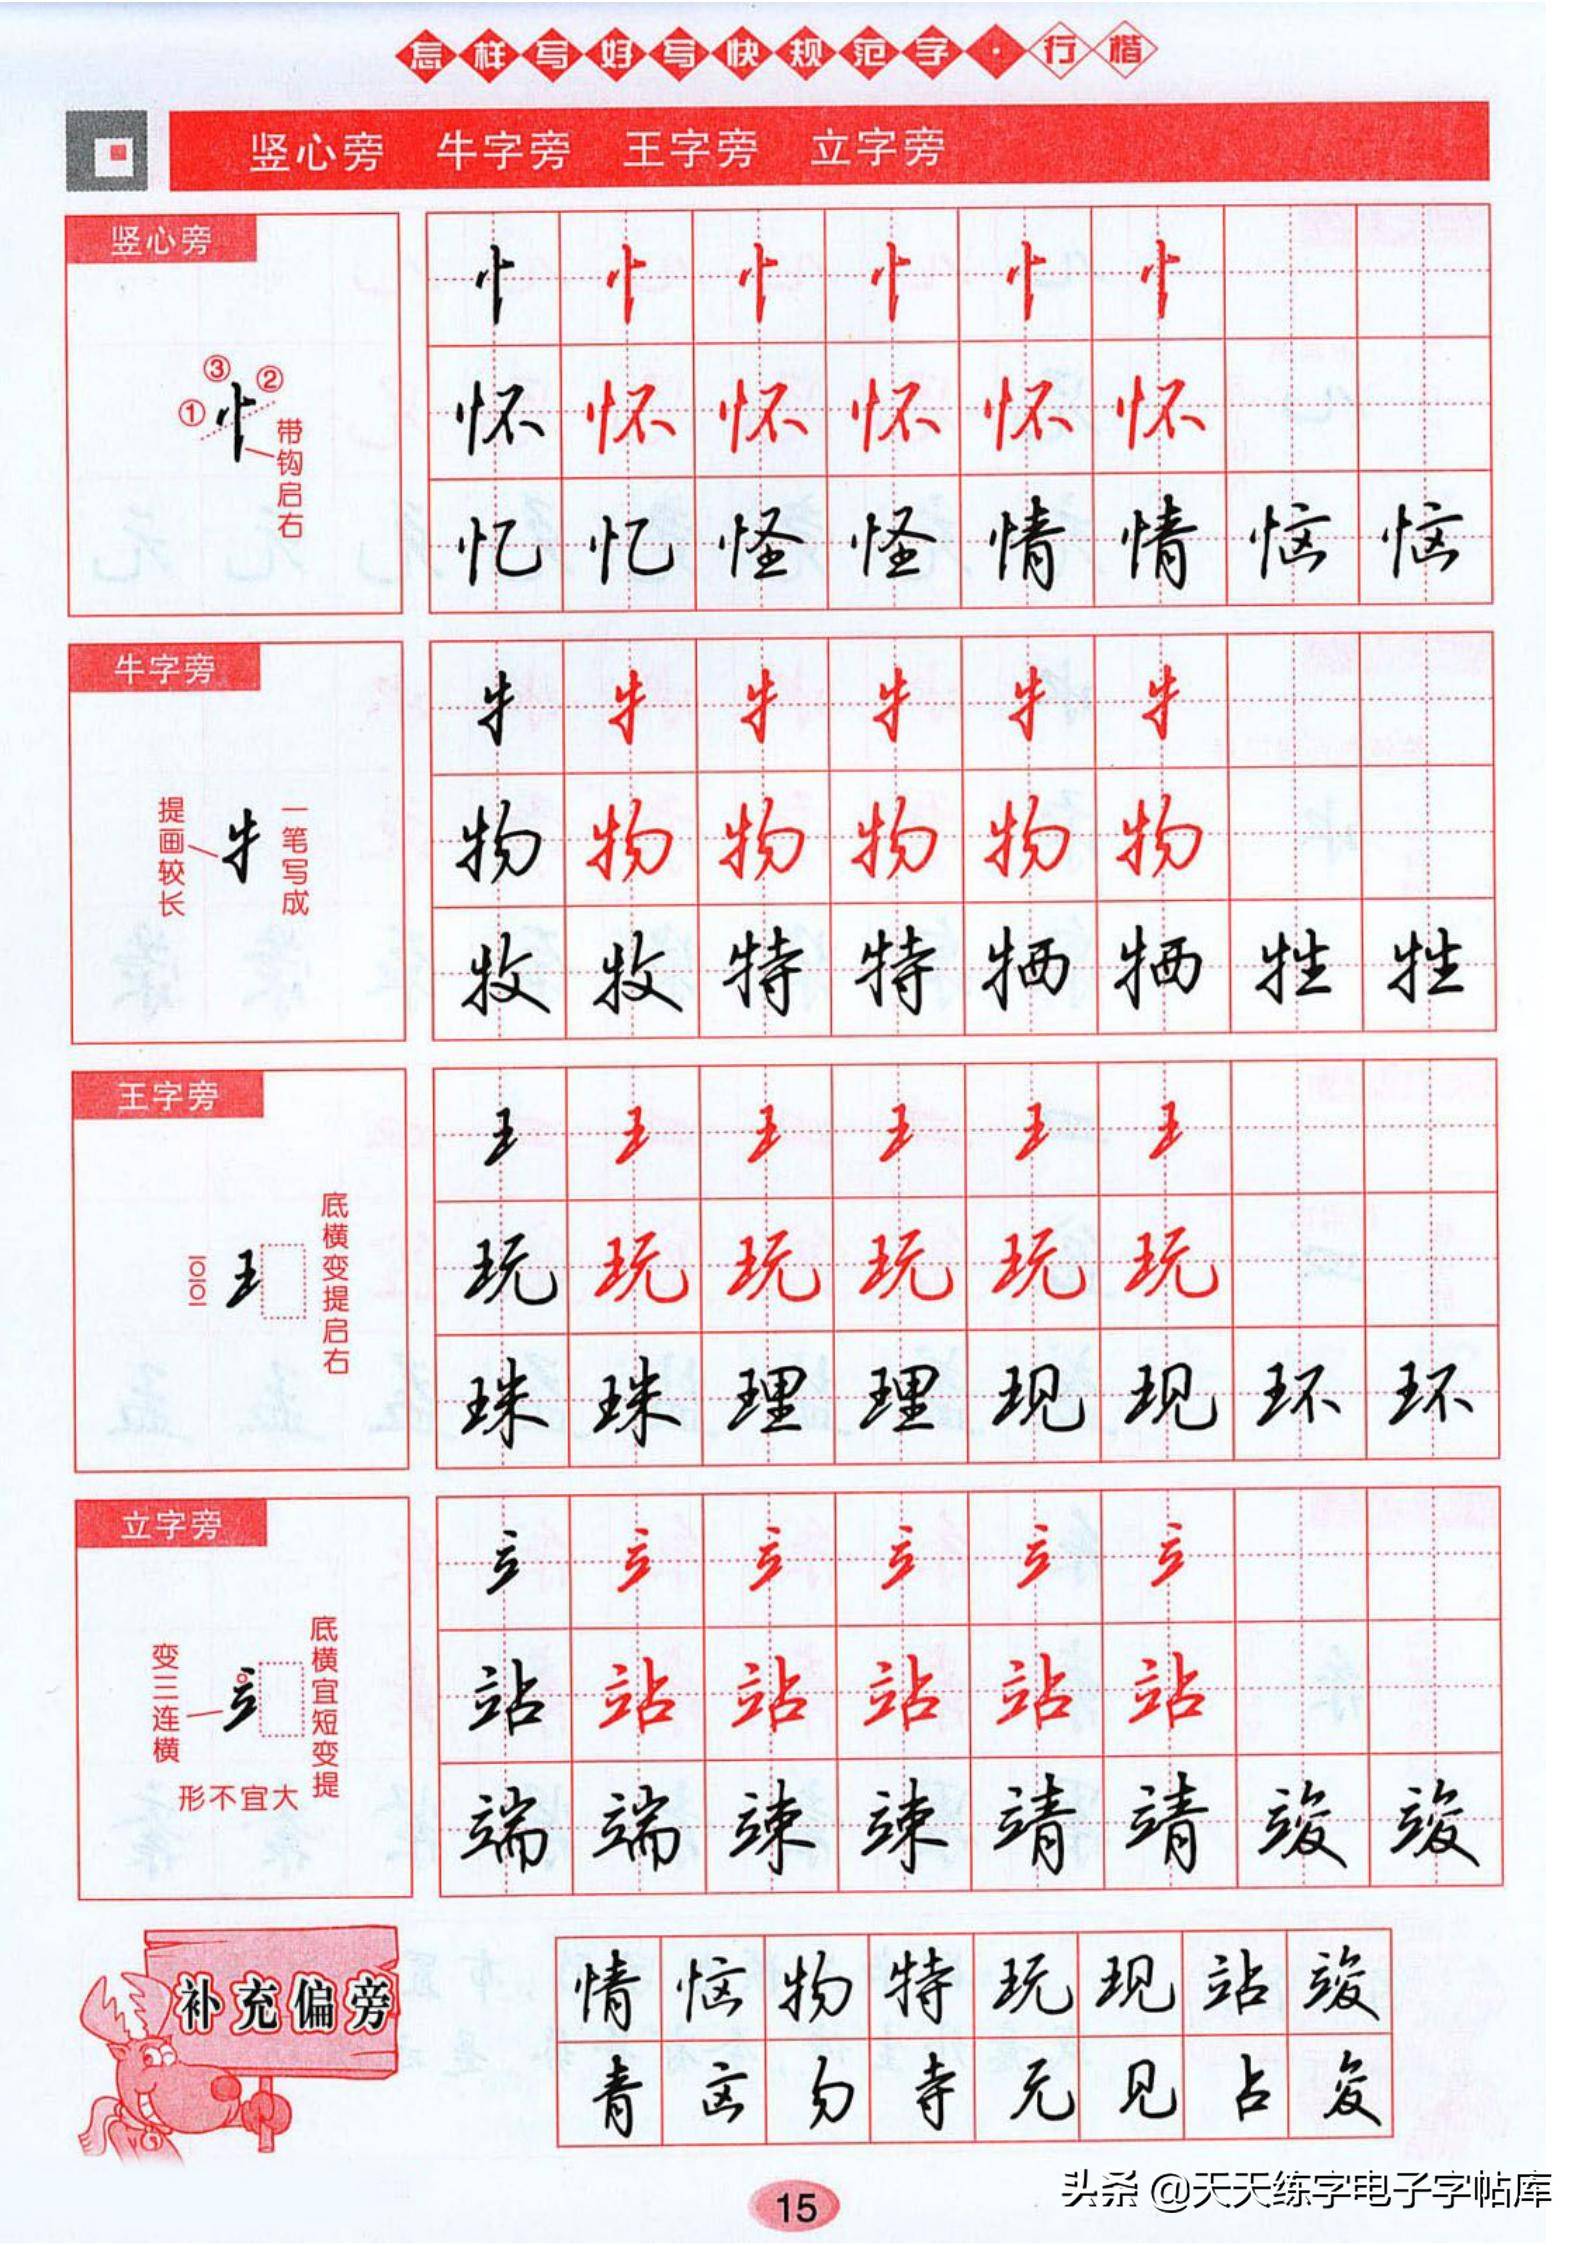 怎样写好写快规范字·行楷
竖心旁 牛字旁 王字旁 立字旁
竖心旁
① ③ ②
带钩启右
忄 忄 忄 忄 忄 忄
怀 怀 怀 怀 怀 怀
忆 忆 怪 怪 情 情 恼 恼
牛字旁
提画较长
一笔写成
牜 牜 牜 牜 牜 牜
物 物 物 物 物 物
牧 牧 特 特 牺 牺 牲 牲
王字旁
底横变提启右
王 王 王 王 王 王
玩 玩 玩 玩 玩 玩
珠 珠 理 理 现 现 环 环
立字旁
变三连横
底横宜短变提
形不宜大
立 立 立 立 立 立
站 站 站 站 站 站
端 端 竦 竦 靖 靖 竣 竣
补充偏旁
情 恼 物 特 玩 现 站 竣
青 㐫 勿 寺 元 见 占 夋
15
头条 @天天练字电子字帖库